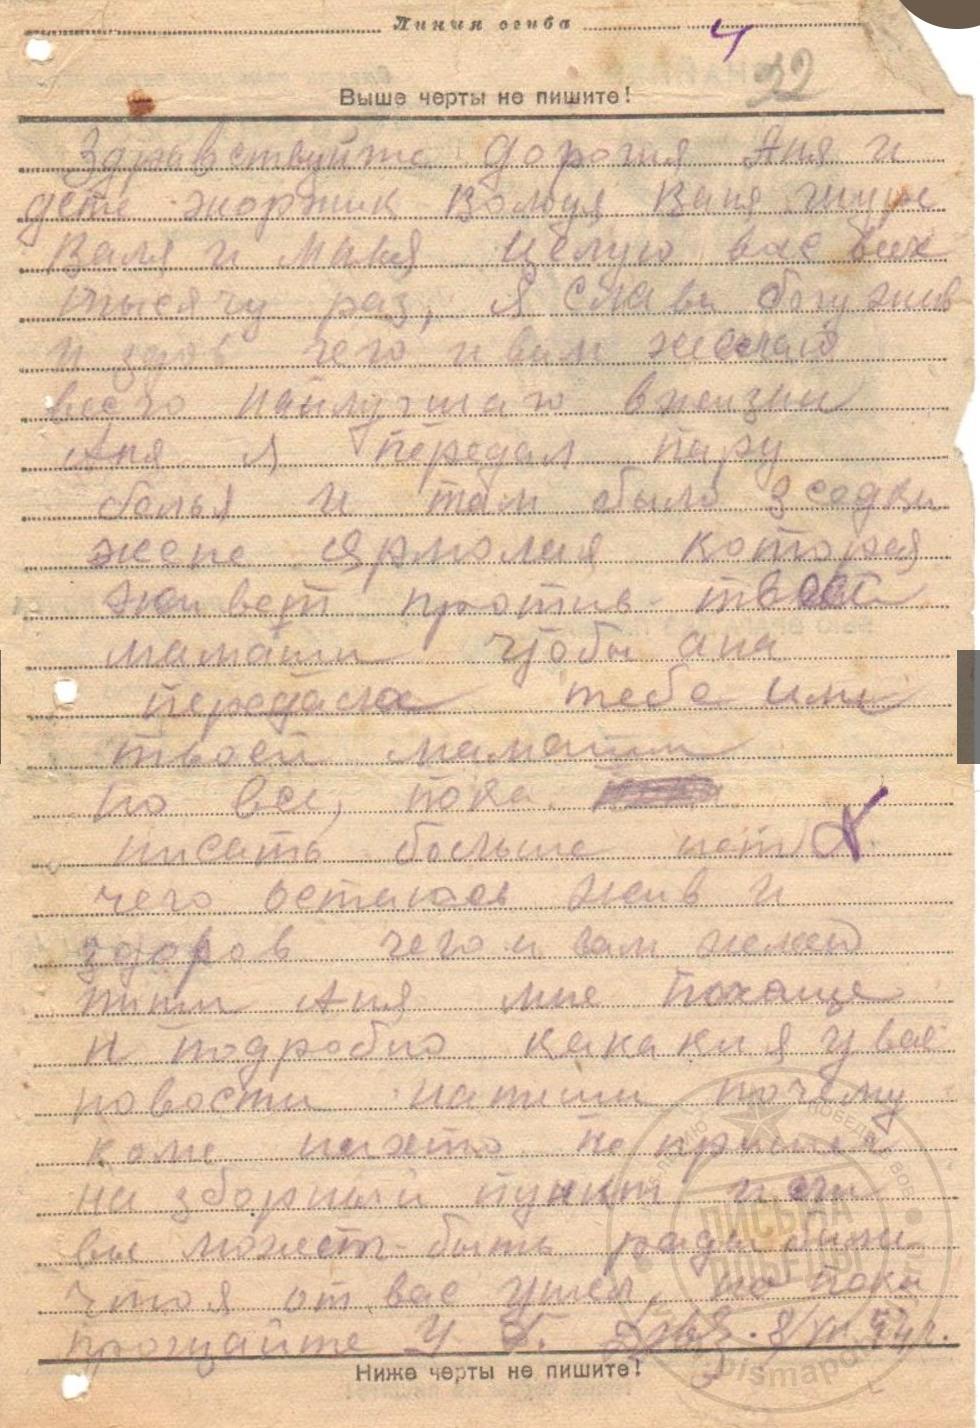 Линия сгиба
4
22
Выше черты не пишите!
Здравствуйте дорогия Аня и
дети жоржик Володя Ваня шура
Валя и Маня целую вас всех
тысячу раз, я слава богу жив
и здоб чего и вам желаю
всего найлучшаго в жизни
Аня я передал пару
белья и там было
жене которая
живет против твоей
мамаши чтобы ана
передала тебе или
твоей мамаши
но все, пока
писать больше нет
чего остаюсь жив и
здоров чего и вам желаю
пиши Аня мне почаще
и подробно какакия у вас
новости напиши почему
коме нихто не пришел
на зборный пункт или
вы может-быть рады были
что я от вас ушел, но пока
прощайте 8/VII
Ниже черты не пишите!
ПИСЬМА
ПОБЕДЫ